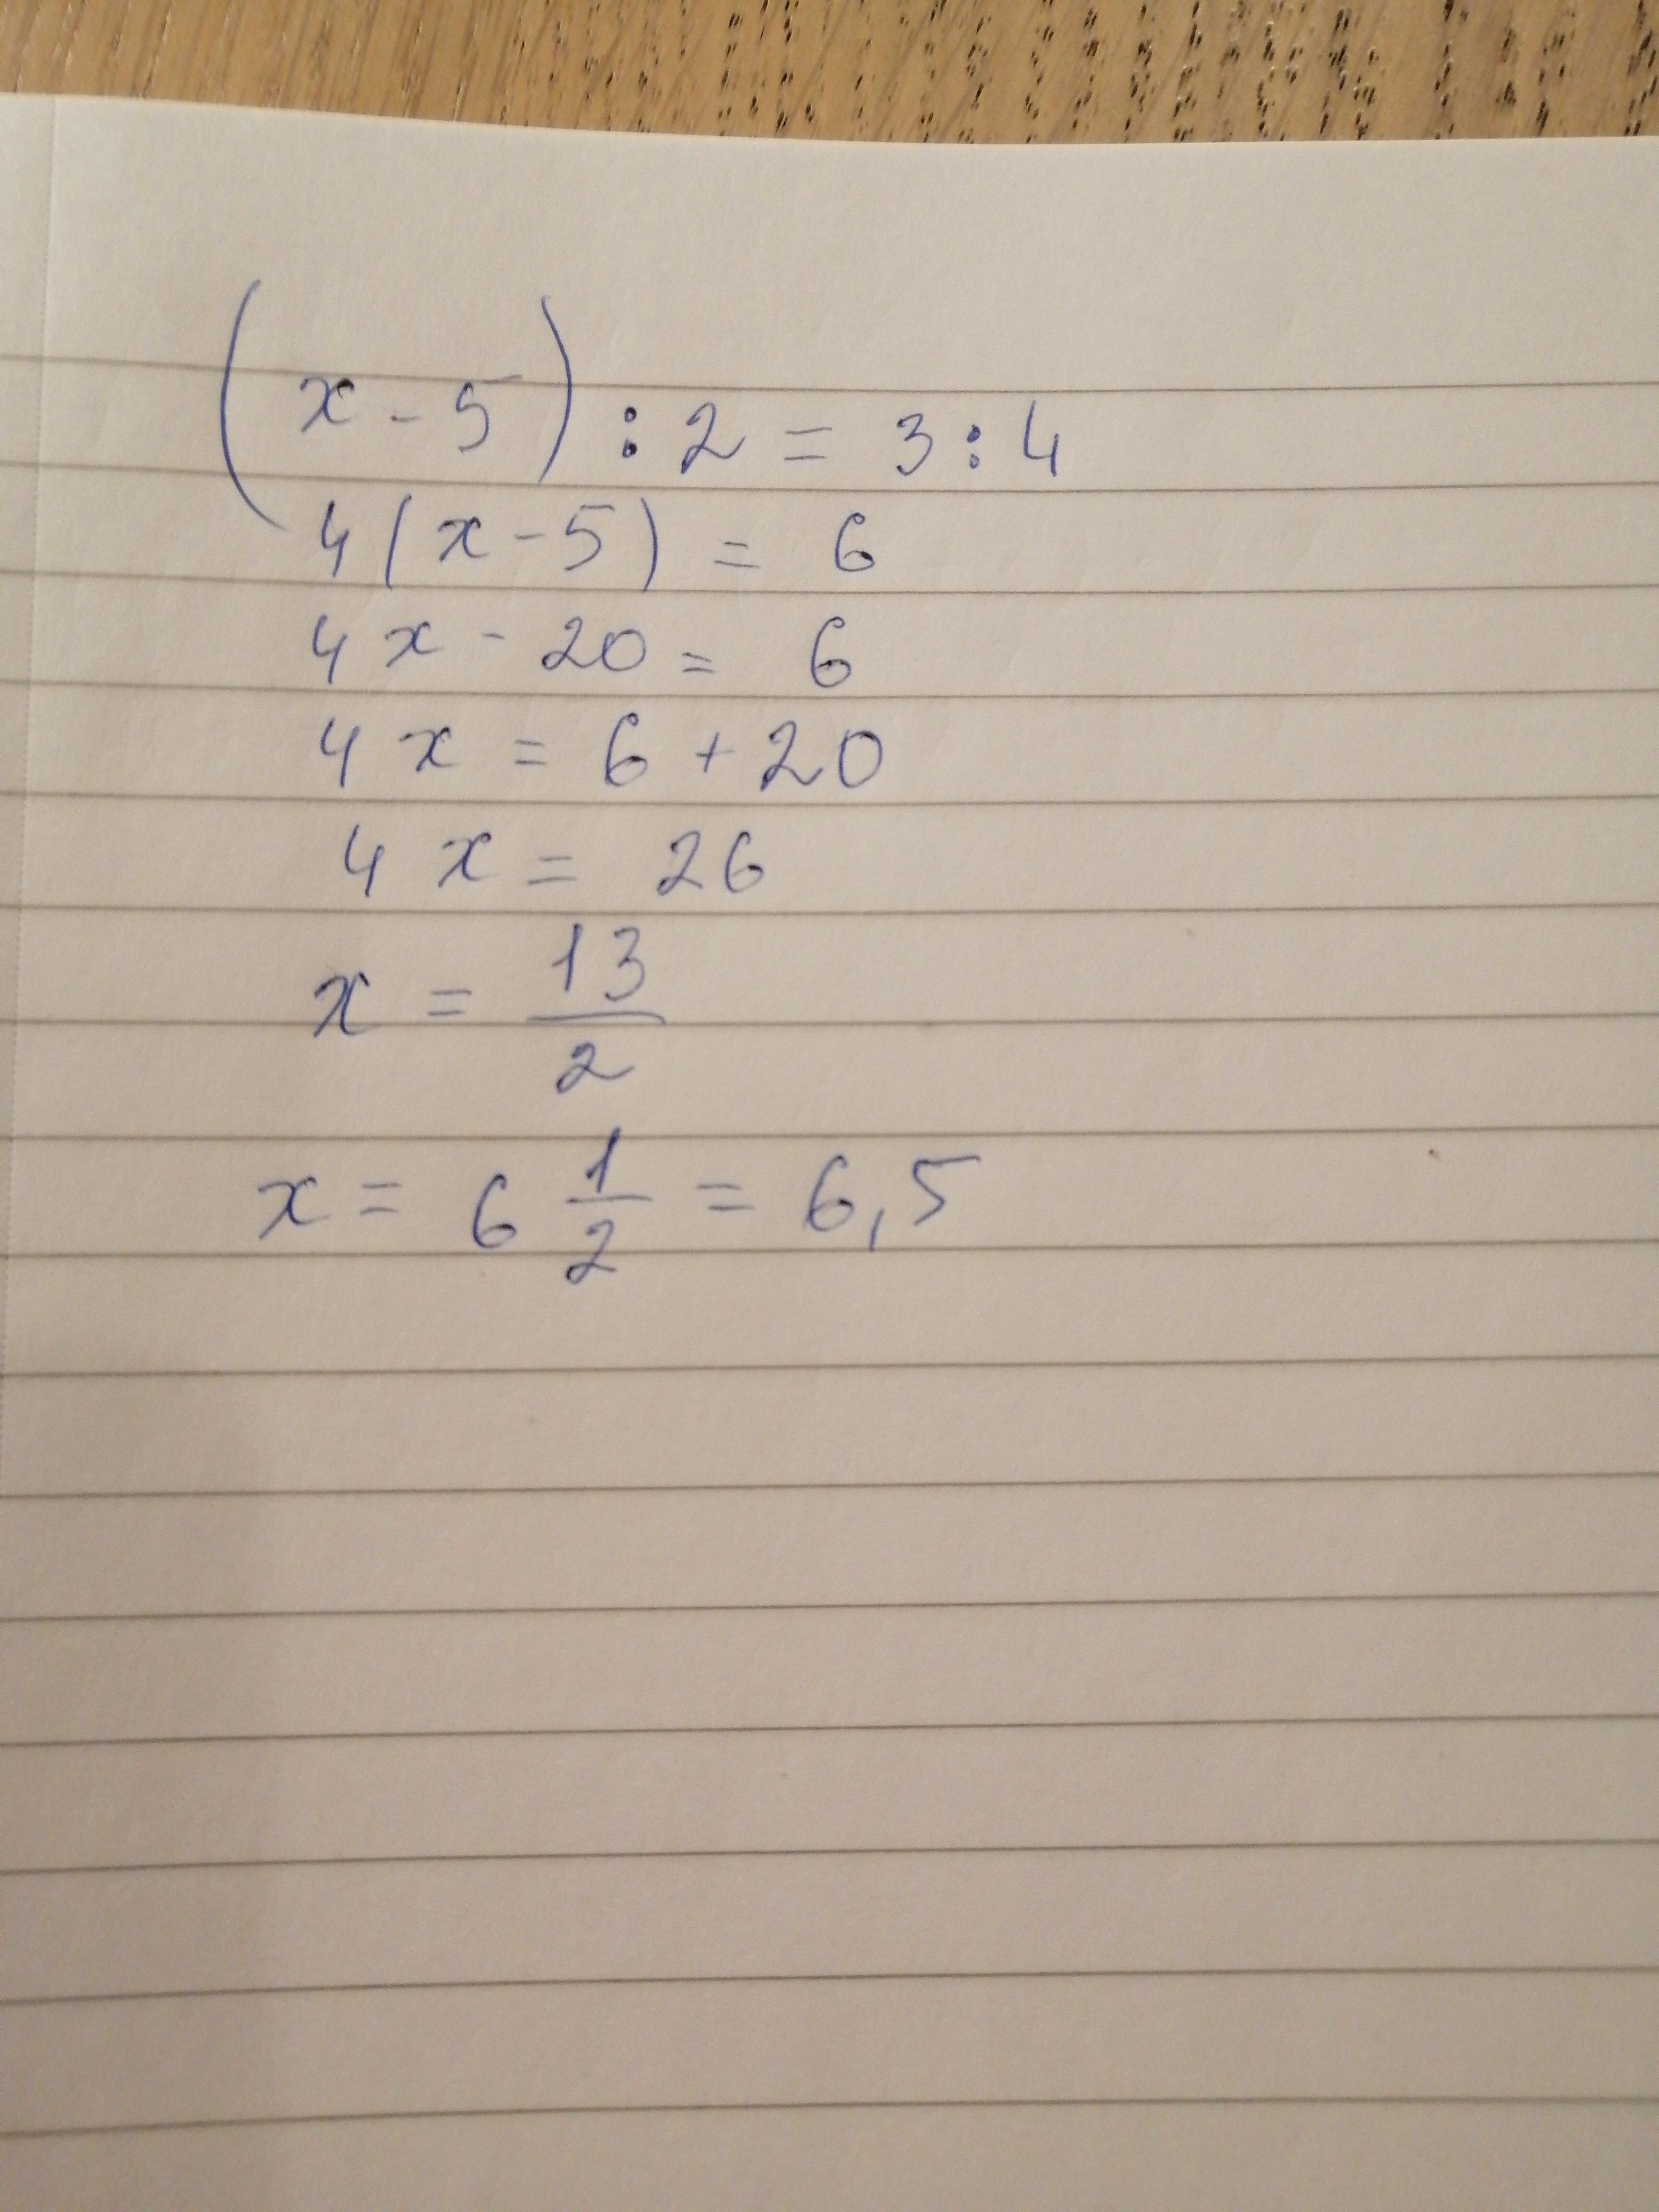 (x - 5) : 2 = 3 : 4
4(x - 5) = 6
4x - 20 = 6
4x = 6 + 20
4x = 26
x = 13/2
x = 6 1/2 = 6,5